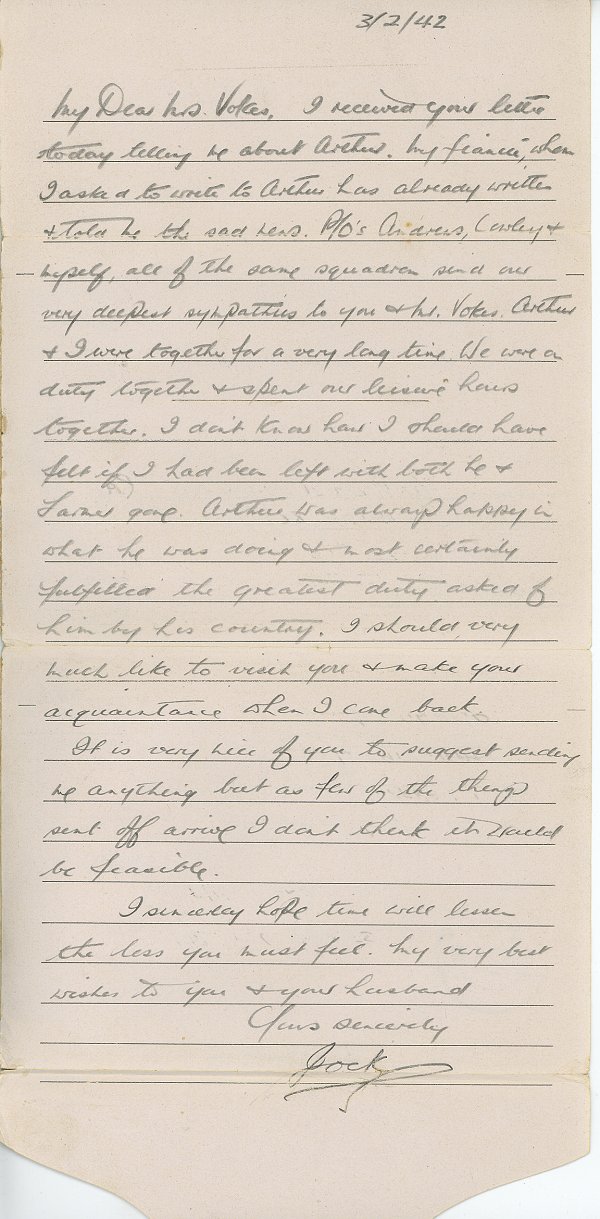 3/2/42
My Dear Mrs. Vokes, I received your letter
today telling me about Arthur. My fiancé, whom
I asked to write to Arthur has already written
& told me the sad news. P/O's Andrews, Cowley &
myself, all of the same squadron send our
very deepest sympathies to you & Mr. Vokes. Arthur
& I were together for a very long time. We were on
duty together & spent our leisure hours
together. I don't know how I should have
felt if I had been left with both he &
Farmer gone. Arthur was always happy in
what he was doing & most certainly
fulfilled the greatest duty asked of
him by his country. I should very
much like to visit you & make your
acquaintance when I come back.
It is very nice of you to suggest sending
me anything but as few of the things
sent off arrive I don't think it would
be feasible.
I sincerely hope time will lessen
the loss you must feel. My very best
wishes to you & your husband
Yours sincerely
Jock